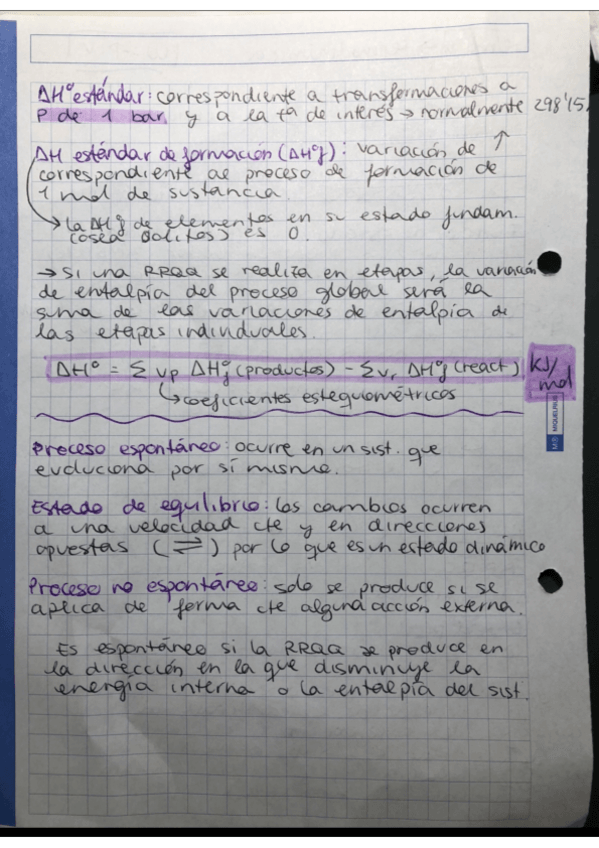 ΔHº estándar: correspondiente a transformaciones a
P de 1 bar, y a la tª de interés → normalmente 298'15
ΔH estándar de formación (ΔHºf): variación de ↑
correspondiente al proceso de formación de
1 mol de sustancia.
→ la ΔHºf de elementos en su estado fundam.
(osea solitos) es 0.
→ Si una RRQQ se realiza en etapas, la variación
de entalpía del proceso global será la
suma de las variaciones de entalpía de
las etapas individuales.
ΔHº = Σ νp ΔHºf (productos) - Σνr ΔHºf (react) kJ/mol
↳ coeficientes estequiométricos
Proceso espontáneo: ocurre en un sist. que
evoluciona por sí mismo.
Estado de equlibrio: los cambios ocurren
a una velocidad cte y en direcciones
opuestas (⇌) por lo que es un estado dinámico
Proceso no espontáneo: solo se produce si se
aplica de forma cte alguna acción externa.
Es espontáneo si la RRQQ se produce en
la dirección en la que disminuye la
energía interna o la entalpía del sist.
MIQUELRIUS